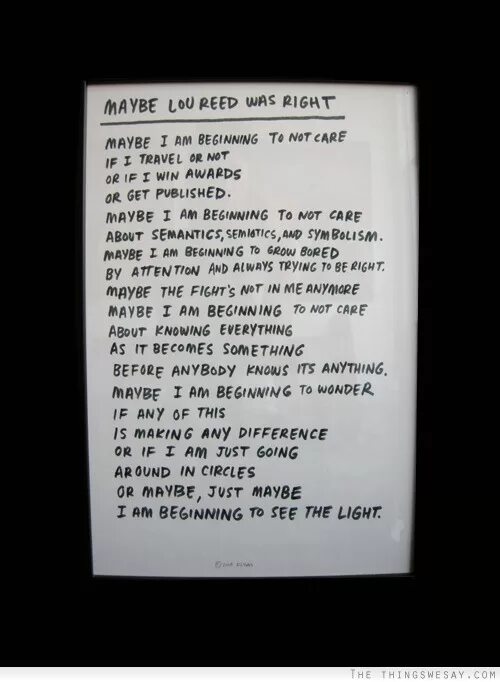 MAYBE LOU REED WAS RIGHT
MAYBE I AM BEGINNING TO NOT CARE
IF I TRAVEL OR NOT
OR IF I WIN AWARDS
OR GET PUBLISHED.
MAYBE I AM BEGINNING TO NOT CARE
ABOUT SEMANTICS, SEMIOTICS, AND SYMBOLISM.
MAYBE I AM BEGINNING TO GROW BORED
BY ATTENTION AND ALWAYS TRYING TO BE RIGHT.
MAYBE THE FIGHT'S NOT IN ME ANYMORE
MAYBE I AM BEGINNING TO NOT CARE
ABOUT KNOWING EVERYTHING
AS IT BECOMES SOMETHING
BEFORE ANYBODY KNOWS ITS ANYTHING.
MAYBE I AM BEGINNING TO WONDER
IF ANY OF THIS
IS MAKING ANY DIFFERENCE
OR IF I AM JUST GOING
AROUND IN CIRCLES
OR MAYBE, JUST MAYBE
I AM BEGINNING TO SEE THE LIGHT.
©
THE THINGSWESAY.COM